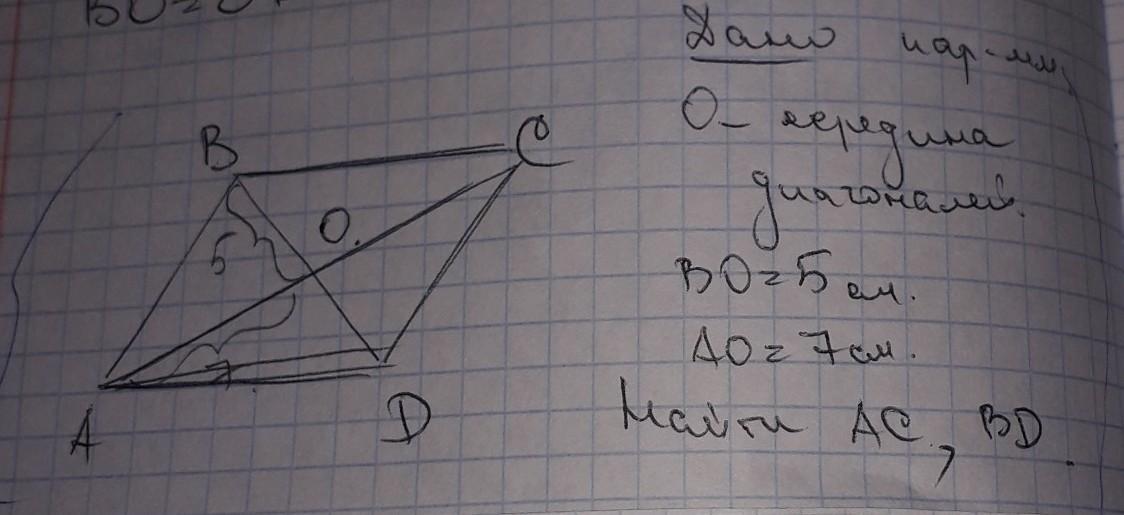 BO=O
Дано пар-мм,
О- середина
диагоналей.
BO=5 см.
AO=7 см.
Найти AC, BD.
B
C
O.
5
7
A
D